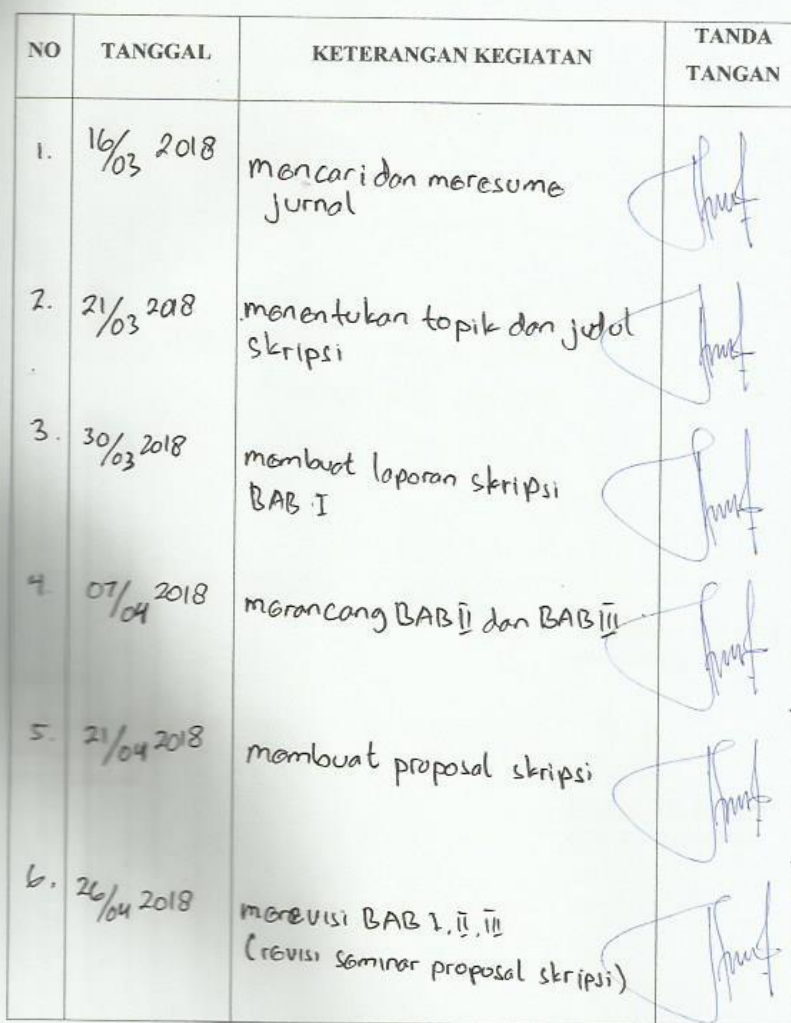 NO TANGGAL KETERANGAN KEGIATAN TANDA TANGAN
1. 16/03 2018 mencari dan meresume
jurnal
2. 21/03 2018 menentukan topik dan judul
skripsi
3. 30/03 2018 membuat laporan skripsi
BAB I
4. 07/04 2018 merancang BAB II dan BAB III
5. 21/04 2018 membuat proposal skripsi
6. 26/04 2018 merevisi BAB I, II, III
(revisi seminar proposal skripsi)